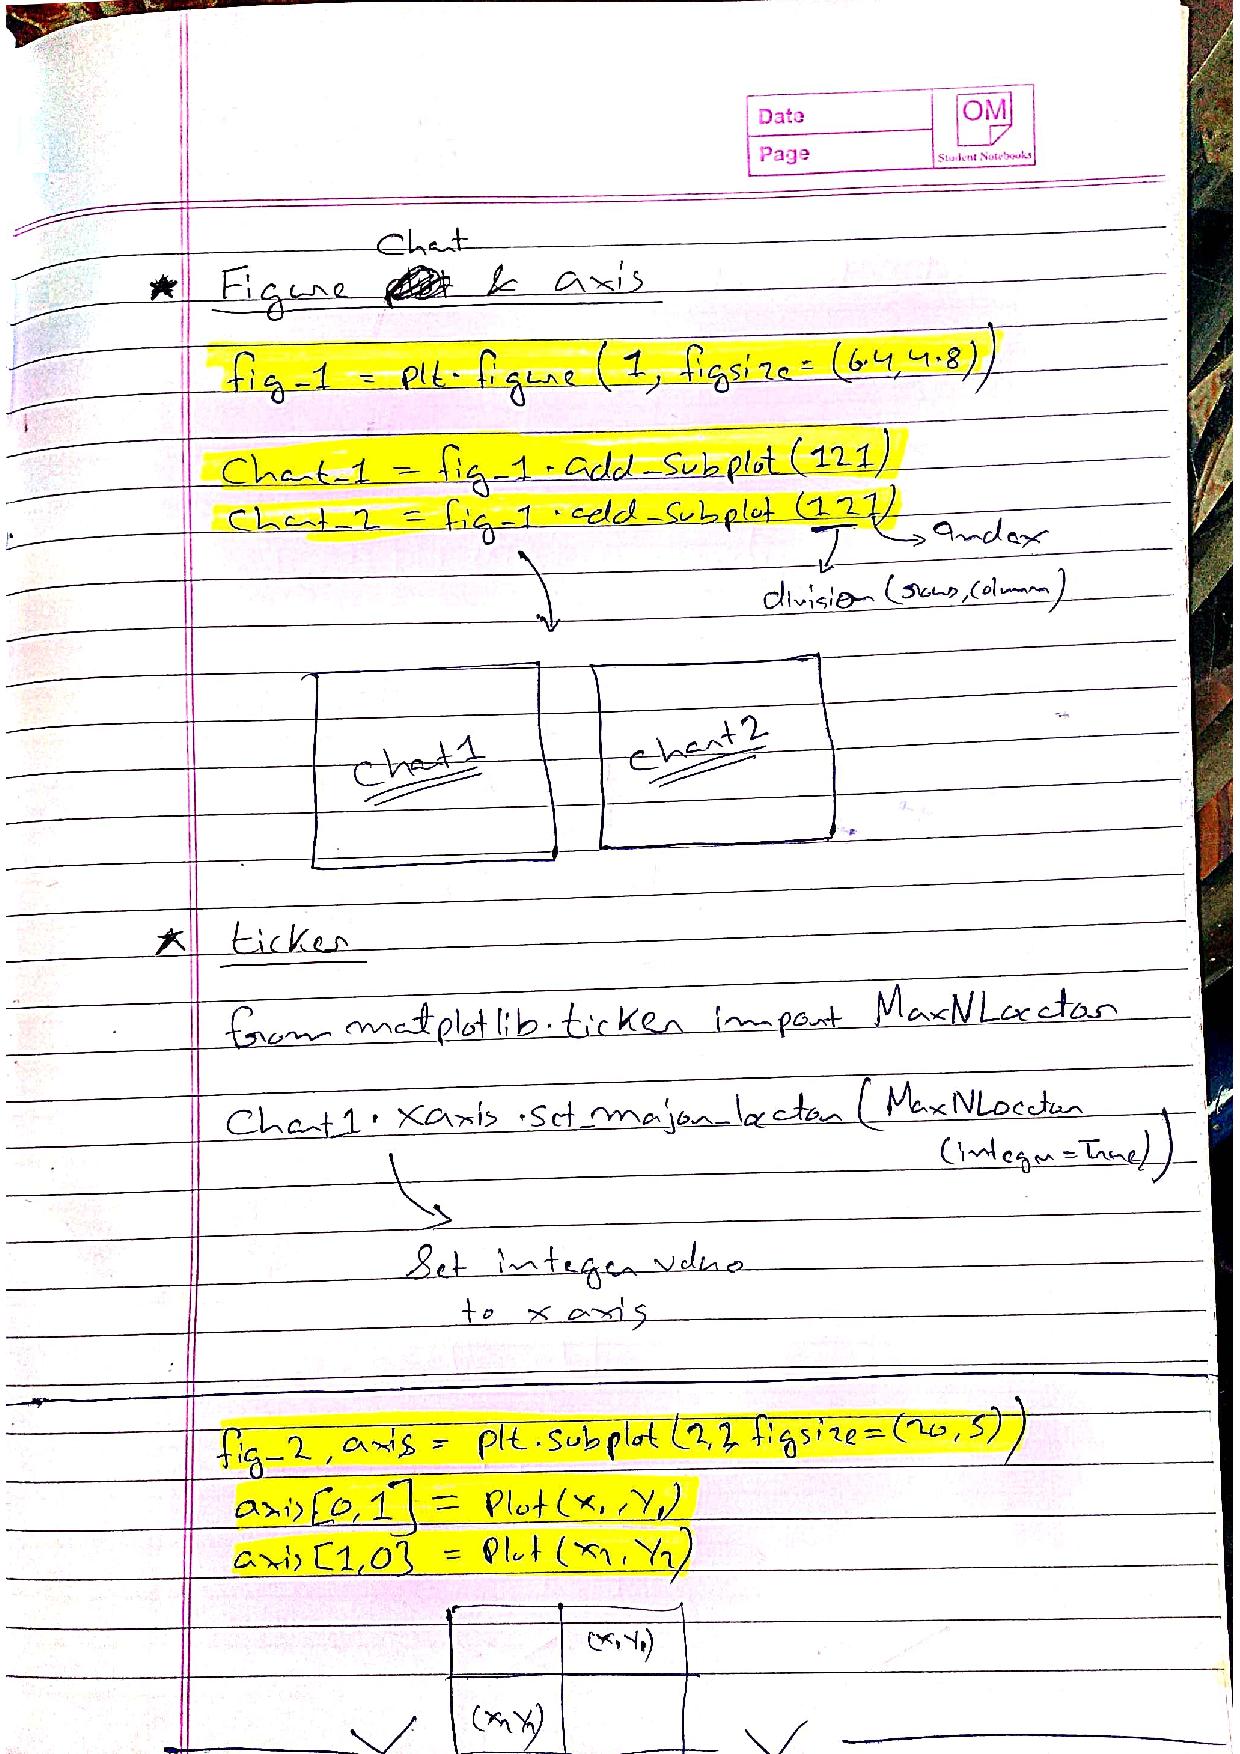 Date
OM
Page
Student Notebooks
Chart
★ Figure & axis
fig-1 = plt.figure (1, figsize = (6.4, 4.8))
Chart_1 = fig_1.add_subplot (121)
Chart_2 = fig_1.add_subplot (121)
index
division (rows, column)
Chart1
Chart2
★ ticker
from matplotlib.ticker import MaxNLocator
Chart1.xaxis.set_major_locator (MaxNLocator
(integer = True))
Set integer value
to x axis
fig_2, axis = plt.subplot (2,2 figsize = (20,5))
axis[0,1] = Plot (x1, Y1)
axis[1,0] = Plot (x2, Y2)
(x1, Y1)
(x2, Y2)